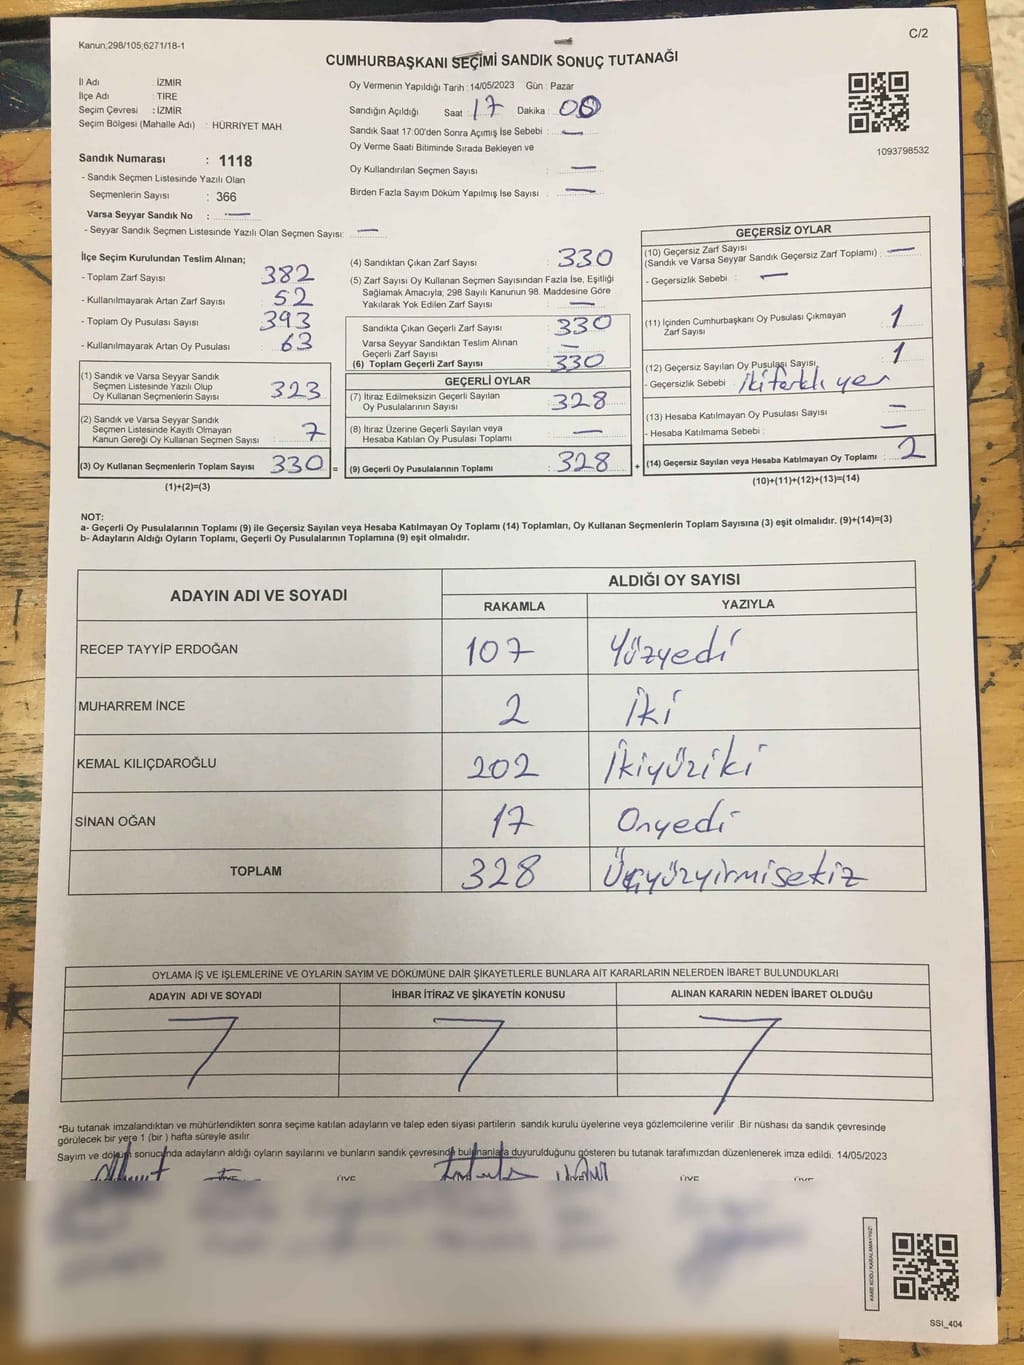 Kanun;298/105;6271/18-1
C/2
CUMHURBAŞKANI SEÇİMİ SANDIK SONUÇ TUTANAĞI
İl Adı : İZMİR
İlçe Adı : TİRE
Seçim Çevresi : İZMİR
Seçim Bölgesi (Mahalle Adı) : HÜRRİYET MAH.
Sandık Numarası : 1118
- Sandık Seçmen Listesinde Yazılı Olan
Seçmenlerin Sayısı : 366
Varsa Seyyar Sandık No : —
- Seyyar Sandık Seçmen Listesinde Yazılı Olan Seçmen Sayısı: —
Oy Vermenin Yapıldığı Tarih : 14/05/2023 Gün : Pazar
Sandığın Açıldığı Saat : 17 Dakika : 00
Sandık Saat 17:00'den Sonra Açımış İse Sebebi : —
Oy Verme Saati Bitiminde Sırada Bekleyen ve
Oy Kullandırılan Seçmen Sayısı : —
Birden Fazla Sayım Döküm Yapılmış İse Sayısı : —
1093798532
İlçe Seçim Kurulundan Teslim Alınan;
- Toplam Zarf Sayısı : 382
- Kullanılmayarak Artan Zarf Sayısı : 52
- Toplam Oy Pusulası Sayısı : 393
- Kullanılmayarak Artan Oy Pusulası : 63
(1) Sandık ve Varsa Seyyar Sandık
Seçmen Listesinde Yazılı Olup
Oy Kullanan Seçmenlerin Sayısı : 323
(2) Sandık ve Varsa Seyyar Sandık
Seçmen Listesinde Kayıtlı Olmayan
Kanun Gereği Oy Kullanan Seçmen Sayısı : 7
(3) Oy Kullanan Seçmenlerin Toplam Sayısı : 330 =
(1)+(2)=(3)
(4) Sandıktan Çıkan Zarf Sayısı : 330
(5) Zarf Sayısı Oy Kullanan Seçmen Sayısından Fazla İse, Eşitliği
Sağlamak Amacıyla; 298 Sayılı Kanunun 98. Maddesine Göre
Yakılarak Yok Edilen Zarf Sayısı : —
Sandıkta Çıkan Geçerli Zarf Sayısı : 330
Varsa Seyyar Sandıktan Teslim Alınan
Geçerli Zarf Sayısı : —
(6) Toplam Geçerli Zarf Sayısı : 330
GEÇERLİ OYLAR
(7) İtiraz Edilmeksizin Geçerli Sayılan
Oy Pusulalarının Sayısı : 328
(8) İtiraz Üzerine Geçerli Sayılan veya
Hesaba Katılan Oy Pusulası Toplamı : —
(9) Geçerli Oy Pusulalarının Toplamı : 328 +
GEÇERSİZ OYLAR
(10) Geçersiz Zarf Sayısı
(Sandık ve Varsa Seyyar Sandık Geçersiz Zarf Toplamı) : —
- Geçersizlik Sebebi : —
(11) İçinden Cumhurbaşkanı Oy Pusulası Çıkmayan
Zarf Sayısı : 1
(12) Geçersiz Sayılan Oy Pusulası Sayısı : 1
- Geçersizlik Sebebi : iki farklı yer
(13) Hesaba Katılmayan Oy Pusulası Sayısı : —
- Hesaba Katılmama Sebebi : —
(14) Geçersiz Sayılan veya Hesaba Katılmayan Oy Toplamı : 2
(10)+(11)+(12)+(13)=(14)
NOT:
a- Geçerli Oy Pusulalarının Toplamı (9) ile Geçersiz Sayılan veya Hesaba Katılmayan Oy Toplamı (14) Toplamları, Oy Kullanan Seçmenlerin Toplam Sayısına (3) eşit olmalıdır. (9)+(14)=(3)
b- Adayların Aldığı Oyların Toplamı, Geçerli Oy Pusulalarının Toplamına (9) eşit olmalıdır.
ADAYIN ADI VE SOYADI
ALDIĞI OY SAYISI
RAKAMLA YAZIYLA
RECEP TAYYİP ERDOĞAN 107 Yüzyedi
MUHARREM İNCE 2 İki
KEMAL KILIÇDAROĞLU 202 İkiyüziki
SİNAN OĞAN 17 Onyedi
TOPLAM 328 Üçyüzyirmisekiz
OYLAMA İŞ VE İŞLEMLERİNE VE OYLARIN SAYIM VE DÖKÜMÜNE DAİR ŞİKAYETLERLE BUNLARA AİT KARARLARIN NELERDEN İBARET BULUNDUKLARI
ADAYIN ADI VE SOYADI İHBAR İTİRAZ VE ŞİKAYETİN KONUSU ALINAN KARARIN NEDEN İBARET OLDUĞU
*Bu tutanak imzalandıktan ve mühürlendikten sonra seçime katılan adayların ve talep eden siyasi partilerin sandık kurulu üyelerine veya gözlemcilerine verilir. Bir nüshası da sandık çevresinde
görülecek bir yere 1 (bir ) hafta süreyle asılır.
Sayım ve döküm sonucunda adayların aldığı oyların sayılarını ve bunların sandık çevresinde bulunanlara duyurulduğunu gösteren bu tutanak tarafımızdan düzenlenerek imza edildi. 14/05/2023
ÜYE ÜYE ÜYE ÜYE
KARE KODU KARALAMAYINIZ!
SSI_404